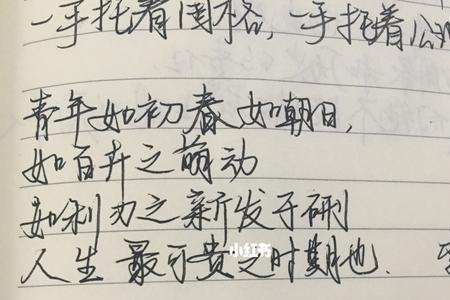 一手托着国格，一手托着公
青年如初春 如朝日，
如百卉之萌动
如利刃之新发于硎
人生 最可贵之时期也.
小红书